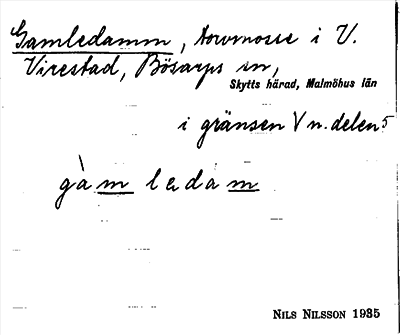 Gamledamm, torvmosse i V.
Virestad, Bösarps sn,
Skytts härad, Malmöhus län
i gränsen V n. delen 5
gàm ledám
NILS NILSSON 1935